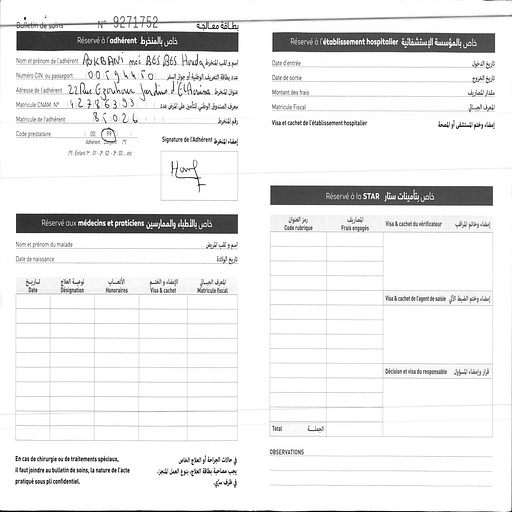 Bulletin de soins N° 9271752 بطاقة معالجة
Réservé à l'adhérent خاص بالمنخرط
Nom et prénom de l'adhérent née BES BES Houda اسم و لقب المنخرط
Numéro CIN ou passeport 00594450 عدد بطاقة التعريف الوطنية أو جواز السفر
Adresse de l'adhérent 22 Rue Jardins d'El Aouina عنوان المنخرط
Matricule CNAM N° 42786393 معرف الصندوق الوطني للتأمين على المرض عدد
Matricule de l'adhérent 85026 رقم المنخرط
Code prestataire 00 99
Adhérent Conjoint (*)
(*) : Enfant 1er : 01 - 2° : 02 - 3° : 03 ... etc
Signature de l'Adhérent إمضاء المنخرط
Réservé aux médecins et praticiens خاص بالأطباء والممارسين
Nom et prénom du malade اسم و لقب المريض
Date de naissance تاريخ الولادة
تاريخ نوعية العلاج الأتعاب الإمضاء و الختم المعرف الجبائي
Date Désignation Honoraires Visa & cachet Matricule fiscal
En cas de chirurgie ou de traitements spéciaux,
il faut joindre au bulletin de soins, la nature de l'acte
pratiqué sous pli confidentiel.
في حالات الجراحة أو العلاج الخاص
يجب مصاحبة بطاقة العلاج، بنوع العمل المنجز،
في ظرف سري.
Réservé à l'établissement hospitalier خاص بالمؤسسة الإستشفائية
Date d'entrée تاريخ الدخول
Date de sortie تاريخ الخروج
Montant des frais مقدار المصاريف
Matricule Fiscal المعرف الجبائي
Visa et cachet de l'établissement hospitalier إمضاء وختم المستشفى أو المصحة
Réservé à la STAR خاص بتأمينات ستار
رمز العنوان المصاريف
Code rubrique Frais engagés
Visa & cachet du vérificateur إمضاء وخاتم المراقب
Visa & cachet de l'agent de saisie إمضاء وختم الضبط الآلي
Décision et visa du responsable قرار وإمضاء المسؤول
Total الجملة
OBSERVATIONS